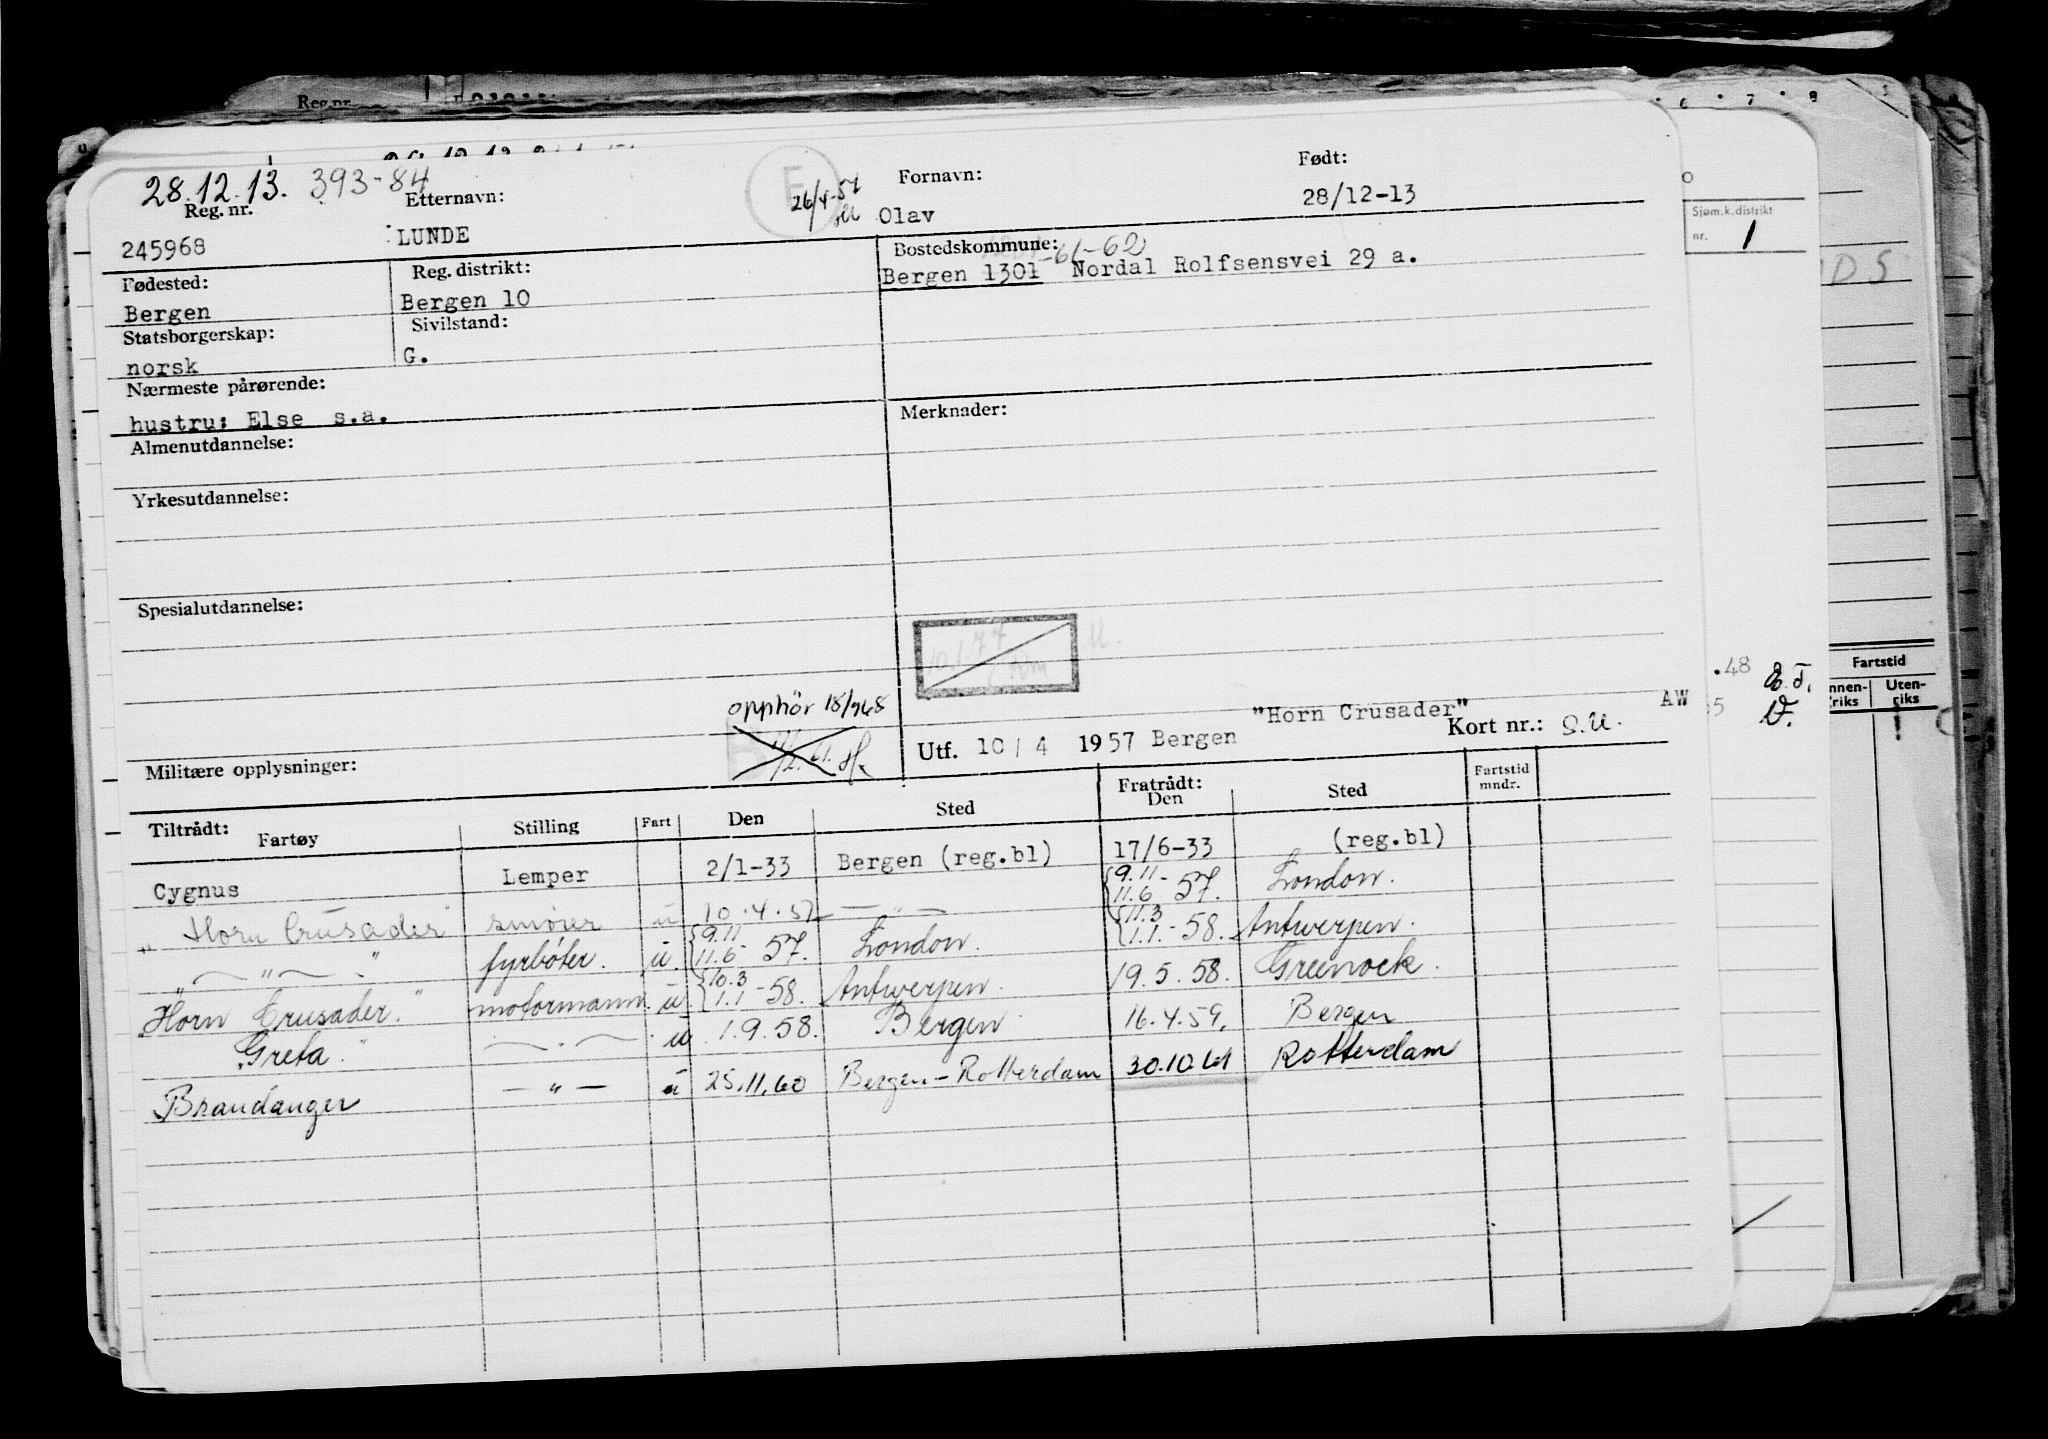 28.12.13. 393-84
Reg. nr. Etternavn: E 26/4-57 Fornavn: Født:
245968 LUNDE Olav 28/12-13
Fødested: Reg. distrikt: Bostedskommune: -61-62
Bergen Bergen 10 Bergen 1301 Nordal Rolfsensvei 29 a.
Statsborgerskap: Sivilstand:
norsk G.
Nærmeste pårørende:
hustru: Else s.a. Merknader:
Almenutdannelse:
Yrkesutdannelse:
Spesialutdannelse:
10.1.77
opphör 18/968
"Horn Crusader" AW
Militære opplysninger: Utf. 10/4 1957 Bergen Kort nr.: S.U.
Tiltrådt: Fratrådt:
Fartøy Stilling Fart Den Sted Den Sted Fartstid mndr.
Cygnus Lemper 2/1-33 Bergen (reg.bl) 17/6-33 (reg.bl)
"Horn Crusader" smører u 10.4.57 — " — {9.11 11.6 - 57. London.
— " — fyrbøter. u. {9.11 11.6 - 57. London. {11.3 1.1. - 58. Antwerpen.
"Horn Crusader." motormann. u. {10.3 1.1 - 58. Antwerpen. 19.5.58. Greenock.
"Greta." — " — u 1.9.58. Bergen 16.4.59. Bergen
Brandanger — " — u 25.11.60 Bergen-Rotterdam 30.10.61 Rotterdam
Reg.nr.
Sjøm.k.distrikt
nr. 1
DS
.48
Fartstid
Innen-riks Uten-riks
6 . 7 . 8